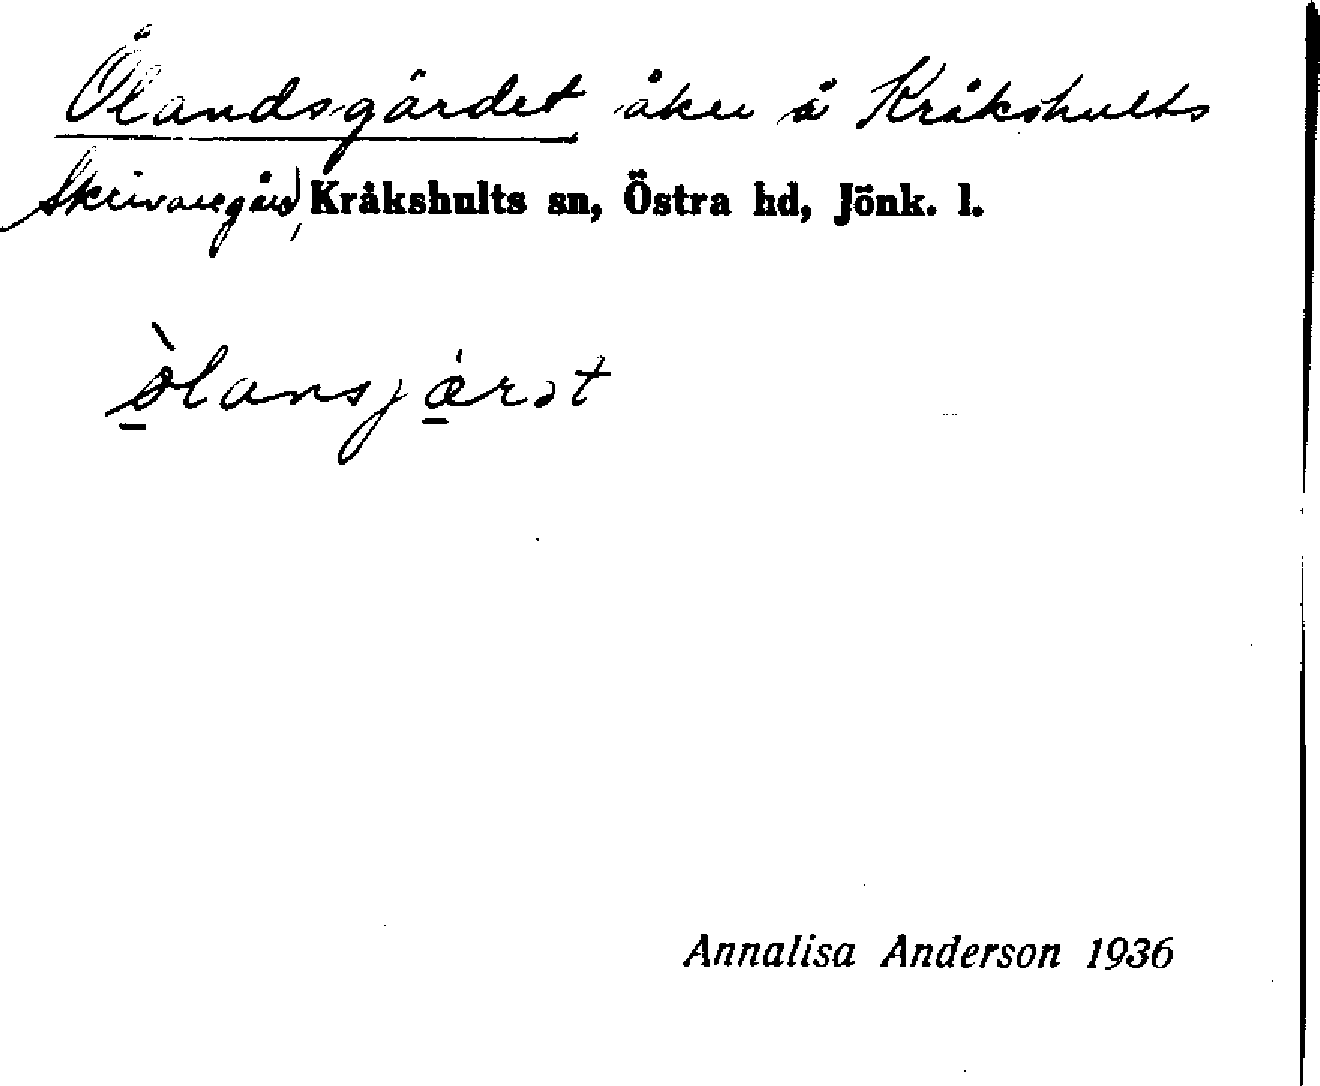 Ölandsgärdet åker å Kråkshults
Skrivaregård, Kråkshults sn, Östra hd, Jönk. l.
ø̀lansjæ̀rət
Annalisa Anderson 1936